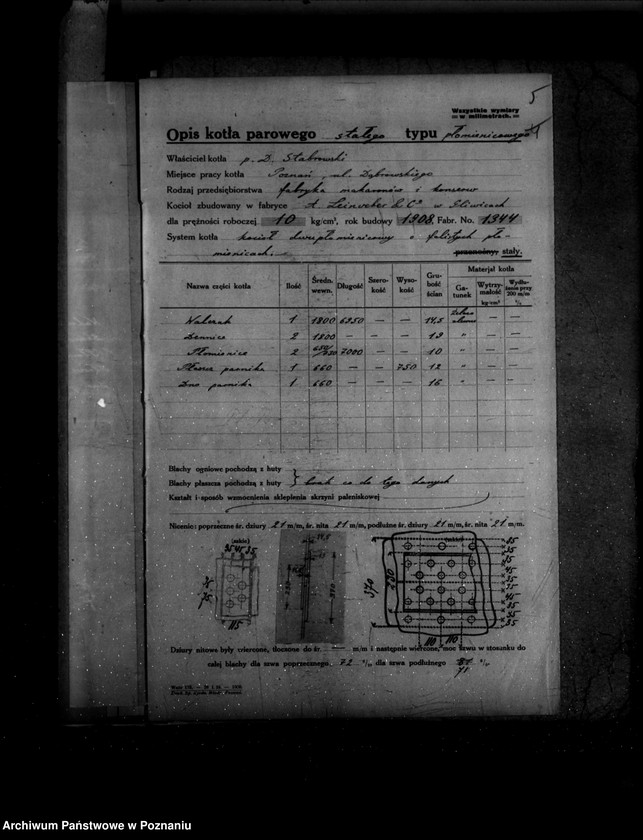 5
Wszystkie wymiary
w milimetrach.
Opis kotła parowego stałego typu płomienicowego
Właściciel kotła p. D. Stabrowski
Miejsce pracy kotła Poznań, ul. Dąbrowskiego
Rodzaj przedsiębiorstwa fabryka makaronów i konserw
Kocioł zbudowany w fabryce A. Leinweber & Co w Gliwicach
dla prężności roboczej 10 kg/cm², rok budowy 1908. Fabr. No. 1344
System kotła kocioł dwupłomienicowy o falistych pło-
mienicach. przenośny, stały.
Nazwa części kotła Ilość Średn. wewn. Długość Szerokość Wysokość Grubość ścian Materjał kotła
Gatunek Wytrzymałość kg/cm² Wydłużenie przy 200 m/m %
Walczak 1 1800 6950 — — 14,5 — —
Dennice 2 1800 — — — 19 " — —
Płomienice 2 7000 — — 10 " — —
Płaszcz parnika 1 660 — — 750 12 " — —
Dno parnika 1 660 — — — 16 " — —
Blachy ogniowe pochodzą z huty
Blachy płaszcza pochodzą z huty } brak co do tego danych
Kształt i sposób wzmocnienia sklepienia skrzyni paleniskowej
Nicenie: poprzeczne śr. dziury 21 m/m, śr. nita 21 m/m, podłużne śr. dziury 21 m/m, śr. nita 21 m/m.
(szkic)
(szkic)
35 45 35
75
115
370
110 110
35
35
35
45
35
35
45
35
35
35
Dziury nitowe były wiercone, tłoczone do śr. — m/m i następnie wiercone, moc szwu w stosunku do
całej blachy dla szwa poprzecznego 72 % dla szwa podłużnego %
71
Archiwum Państwowe w Poznaniu